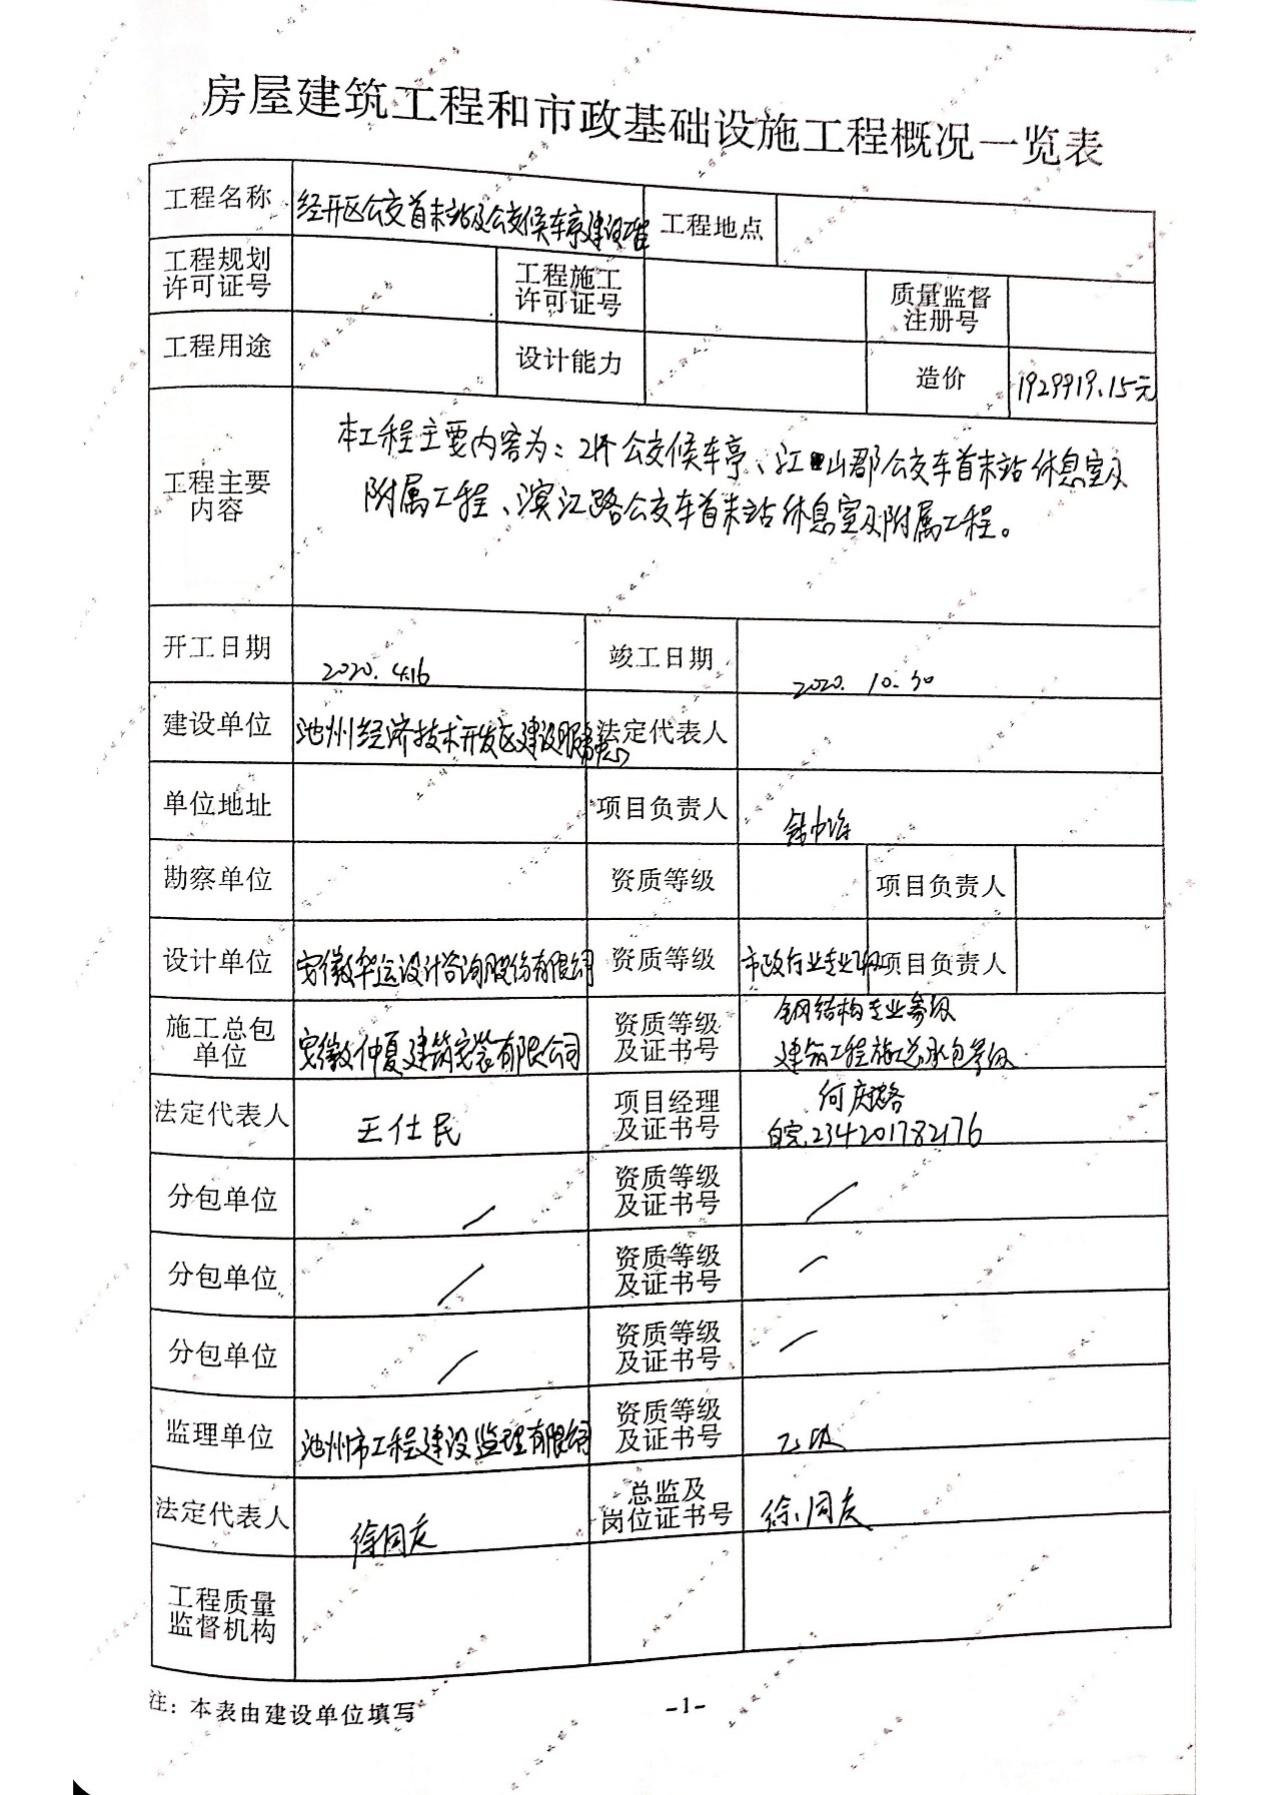 房屋建筑工程和市政基础设施工程概况一览表
工程名称 经开区公交首末站及公交候车亭建设工程 工程地点
工程规划许可证号 工程施工许可证号 质量监督注册号
工程用途 设计能力 造价 1929919.15元
工程主要内容
本工程主要内容为：21个公交候车亭、江山郡公交车首末站休息室及
附属工程、滨江路公交车首末站休息室及附属工程。
开工日期 2020.4.16 竣工日期 2020.10.30
建设单位 池州经济技术开发区建设服务中心 法定代表人
单位地址 项目负责人
勘察单位 资质等级 项目负责人
设计单位 安徽华运设计咨询股份有限公司 资质等级 市政行业专业 项目负责人
施工总包单位 安徽仲夏建筑安装有限公司 资质等级及证书号 钢结构专业叁级
建筑工程施工总承包叁级
法定代表人 王仕民 项目经理及证书号 何庆
皖234201782176
分包单位 / 资质等级及证书号 /
分包单位 / 资质等级及证书号 /
分包单位 / 资质等级及证书号 /
监理单位 池州市工程建设监理有限公司 资质等级及证书号 乙级
法定代表人 徐同庆 总监及岗位证书号 徐同庆
工程质量监督机构
注：本表由建设单位填写
-1-